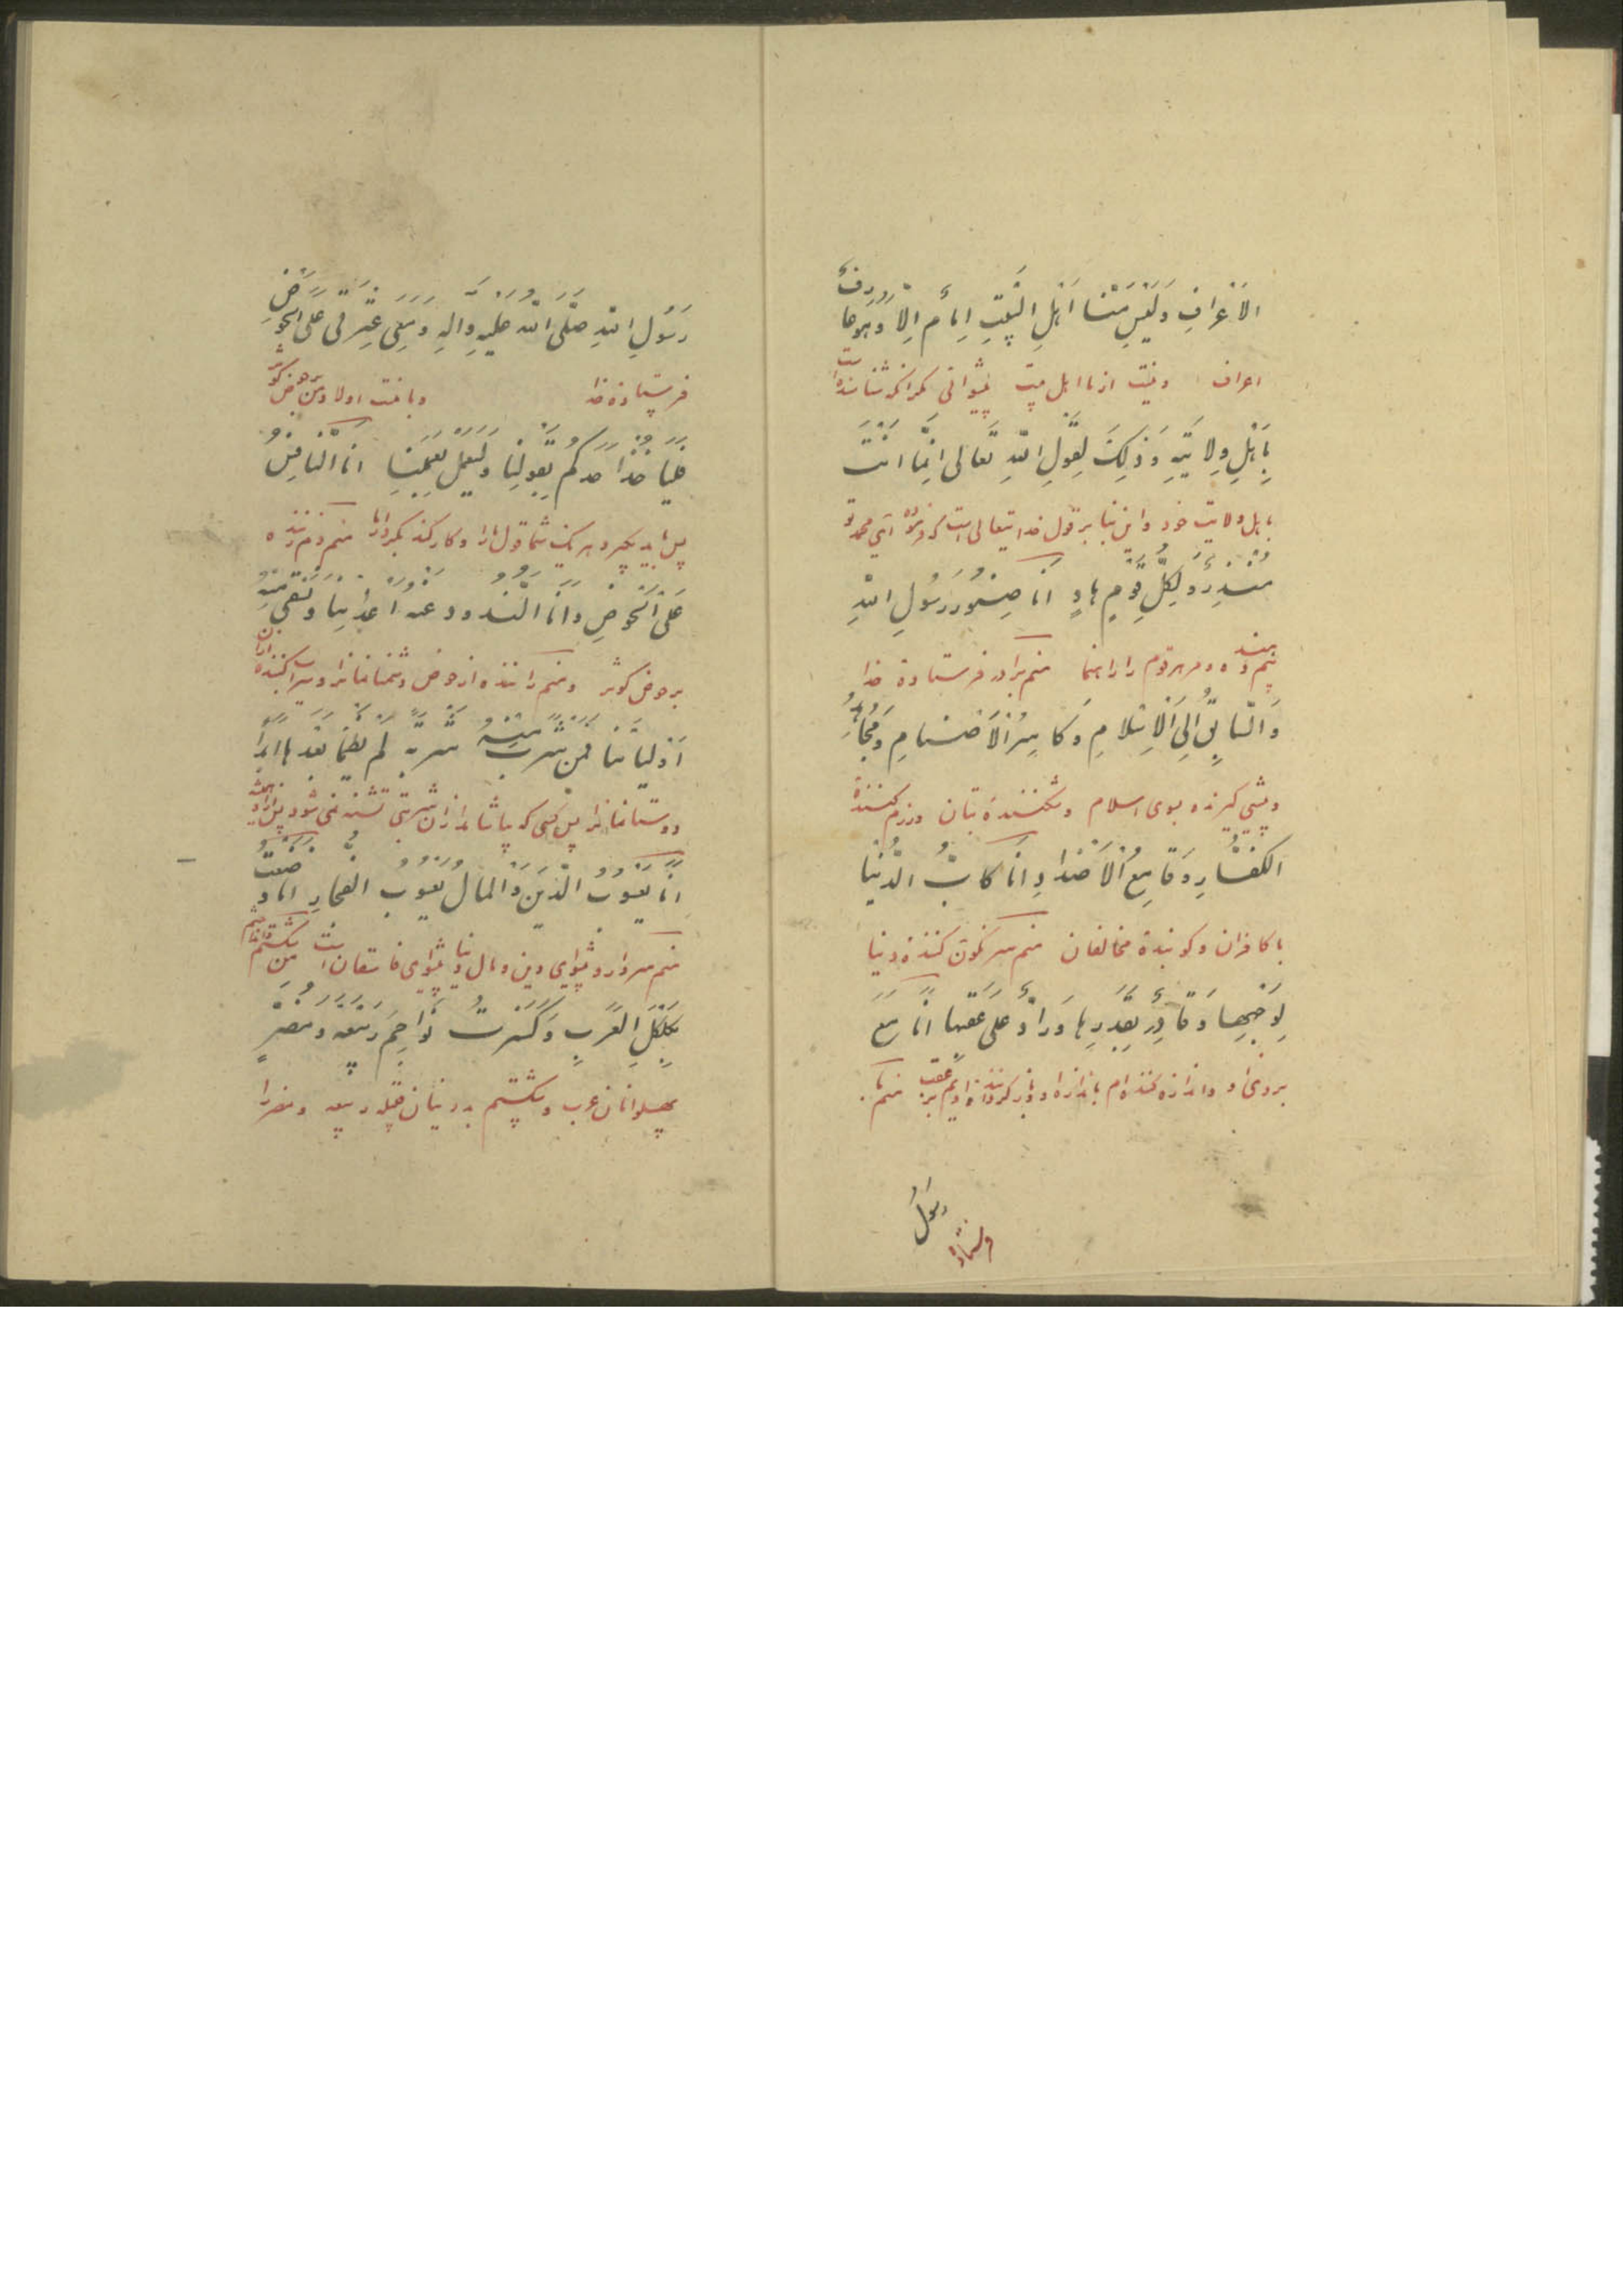 الْاَعْرَافِ وَلَیْسَ مِنَّا اَهْلِ الْبَیْتِ اِمَامٌ اِلَّا وَهُوَ عَارِفٌ
اعراف و نیست از ما اهل بیت پیشوائی مکر آنکه شناسنده است
بِاَهْلِ وِلَایَتِهِ وَذٰلِكَ لِقَوْلِ اللّهِ تَعَالی اِنَّمَا اَنْتَ
باهل ولایت خود و این بنا بر قول خدایتعالی است که فرموده ای محمد تو
مُنْذِرٌ وَلِكُلِّ قَوْمٍ هَادٍ اَنَا صِنْوُ رَسُولِ اللّهِ
بیم دهنده و مر هر قوم را راهنما منم برادر فرستادهٔ خدا
وَالسَّابِقُ اِلَی الْاِسْلَامِ وَكَاسِرُ الْاَصْنَامِ وَمُجَاهِدُ
و پیشی کیرنده بسوی اسلام و شکنندهٔ بتان و رزم کنندهٔ
الْكُفَّارِ وَقَامِعُ الْاَضْدَادِ اَنَا كَابُّ الدُّنْیَا
با کافران و کوبندهٔ مخالفان منم سرنکون کنندهٔ دنیا
لِوَجْهِهَا وَقَادِرٌ بِقَدَرِهَا وَرَادٌّ عَلی عَقِبِهَا اَنَا مَعَ
بروی او و اندازه کننده‌ام باندازه او و باز کرداننده اویم بر عقب منم با
رسول
فرستادهٔ
رَسُولِ اللّهِ صَلَّی اللّه عَلَیْهِ وَآلِهِ وَمَعِی عِتْرَتِی عَلَی الْحَوْضِ
فرستادهٔ خدا و با منست اولاد من بر حوض کوثر
فَلْیَاْخُذْ اَحَدُكُمْ بِقَوْلِنَا وَلْیَعْمَلْ بِعَمَلِنَا اَنَا
پس باید بکیرد هر یک شما قول ما را و کار کند بکردار ما منم
عَلَی الْحَوْضِ وَاَنَا اَعْدَائَنَا
بر حوض کوثر و منم راننده از حوض دشمنانمانرا و سیراب کننده ازان
اَوْلِیَائَنَا فَمَنْ شَرِبَ مِنْهُ شَرْبَةً لَمْ یَظْمَأْ بَعْدَهَا اَبَدًا
دوستانمانرا پس کسی که بیاشامد از آن شربتی تشنه نمی شود پس از او همیشه
اَنَا یَعْسُوبُ الدِّینِ وَالْمَالُ یَعْسُوبُ الْفُجَّارِ اَنَا وَضَعْتُ
منم سردار و پیشوای دین و مال دنیا پیشوای فاسقان است
بِكَلْكَلِ الْعَرَبِ وَكَسَرْتُ نَوَاجِمَ رَبِیعَةَ وَمُضَرَ
پهلوانان عرب و شکستم قبیله ربیعه و مضر را